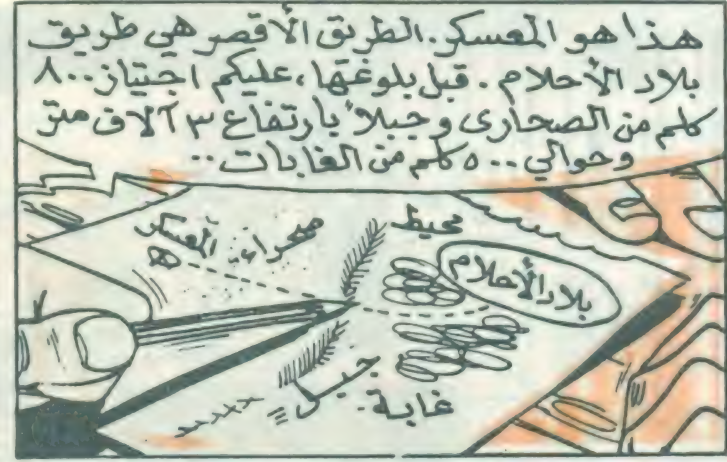 هذا هو المعسكر. الطريق الأقصر هي طريق
بلاد الأحلام. قبل بلوغها، عليكم اجتياز ٨٠٠
كلم من الصحارى وجبلاً بارتفاع ٣ آلاف متر
وحوالي ٥٠٠ كلم من الغابات..
صحراء
المعسكر
محيط
بلاد الأحلام
جبل
غابة